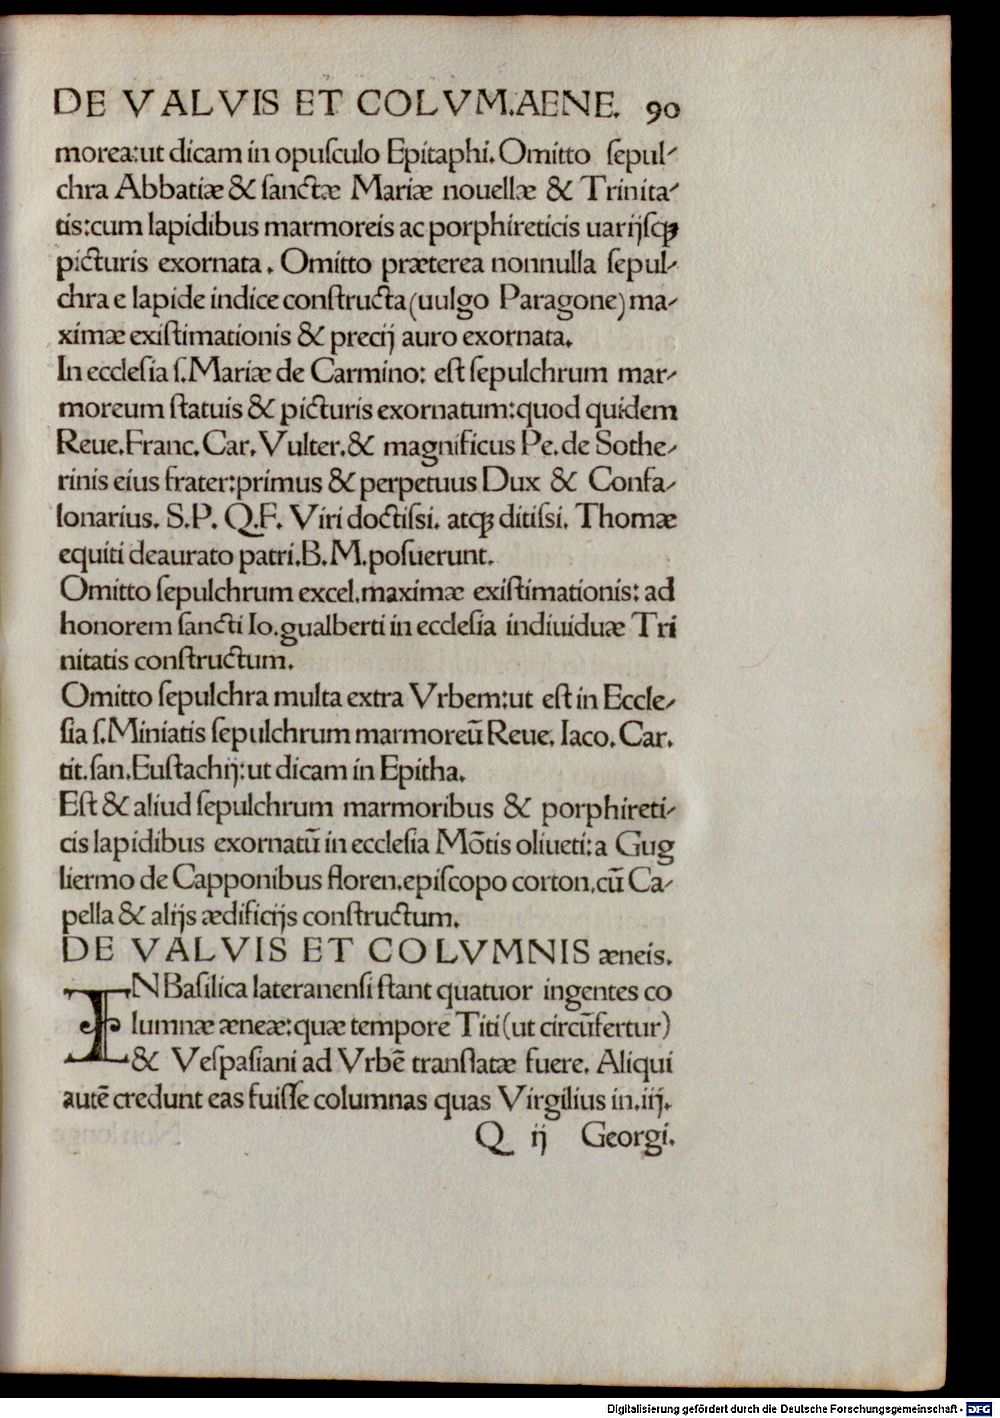 DE VALVIS ET COLVM.AENE. 90
morea:ut dicam in opuſculo Epitaphi. Omitto ſepul-
chra Abbatiæ & ſanctæ Mariæ nouellæ & Trinita-
tis:cum lapidibus marmoreis ac porphireticis uarijſqꝫ
picturis exornata. Omitto præterea nonnulla ſepul-
chra e lapide indice conſtructa (uulgo Paragone) ma-
ximæ exiſtimationis & precij auro exornata.
In eccleſia ſ.Mariæ de Carmino: eſt ſepulchrum mar-
moreum ſtatuis & picturis exornatum:quod quidem
Reue.Franc.Car.Vulter.& magnificus Pe.de Sothe-
rinis eius frater:primus & perpetuus Dux & Confa-
lonarius. S.P. Q.F. Viri doctiſsi. atqꝫ ditiſsi. Thomæ
equiti deaurato patri.B.M.poſuerunt.
Omitto ſepulchrum excel.maximæ exiſtimationis: ad
honorem ſancti Io.gualberti in eccleſia indiuiduæ Tri
nitatis conſtructum.
Omitto ſepulchra multa extra Vrbem:ut eſt in Eccle-
ſia ſ.Miniatis ſepulchrum marmoreū Reue. Iaco. Car.
tit.ſan.Euſtachij:ut dicam in Epitha.
Eſt & aliud ſepulchrum marmoribus & porphireti-
cis lapidibus exornatū in eccleſia Mōtis oliueti:a Gug
liermo de Capponibus floren.epiſcopo corton.cū Ca-
pella & alijs ædificijs conſtructum.
DE VALVIS ET COLVMNIS æneis.
IN Baſilica lateranenſi ſtant quatuor ingentes co
lumnæ æneæ:quæ tempore Titi (ut circūfertur)
& Veſpaſiani ad Vrbē tranſlatæ fuere. Aliqui
autē credunt eas fuiſſe columnas quas Virgilius in.iij.
Q ij Georgi.
Digitalisierung gefördert durch die Deutsche Forschungsgemeinschaft - DFG